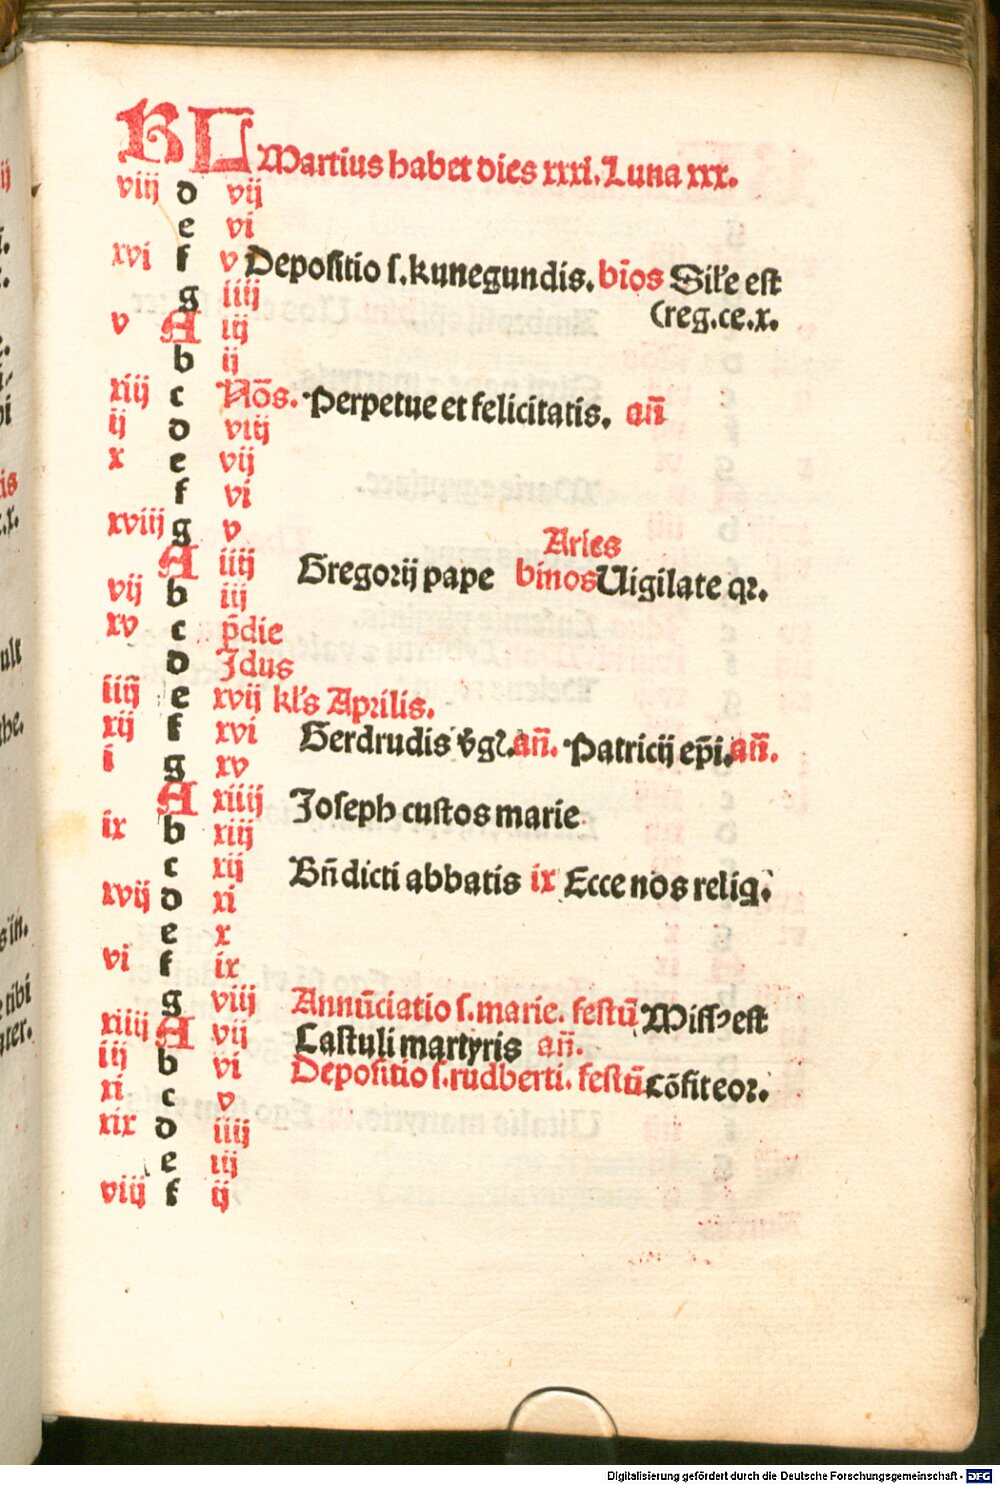 KL Martius habet dies xxxi. Luna xxx.
viij d vij
e vi
xvi f v Depositio s. kunegundis. bīos Sił'e est
g iiij (reg.ce.x.
v A iij
b ij
xiij c Nōs. Perpetue et felicitatis. añ
ij d viij
x e vij
f vi
xviij g v Aries
A iiij Gregorij pape binos Uigilate qꝛ.
vij b iij
xv c p̄die
d Idus
iiij e xvij kl's Aprilis.
xij f xvi Gerdrudis v̄gꝛ. añ. Patricij ep̄i. añ.
i g xv
A xiiij Joseph custos marie
ix b xiij
c xij Bn̄dicti abbatis ix Ecce nos relig.
xvij d xi
e x
vi f ix
g viij Annūciatio s. marie. festū Missꝰ est
xiiij A vij Castuli martyris añ.
iij b vi Depositio s. rudberti. festū Cōfiteoꝛ.
xi c v
xix d iiij
e iij
viij f ij
Digitalisierung gefördert durch die Deutsche Forschungsgemeinschaft - DFG